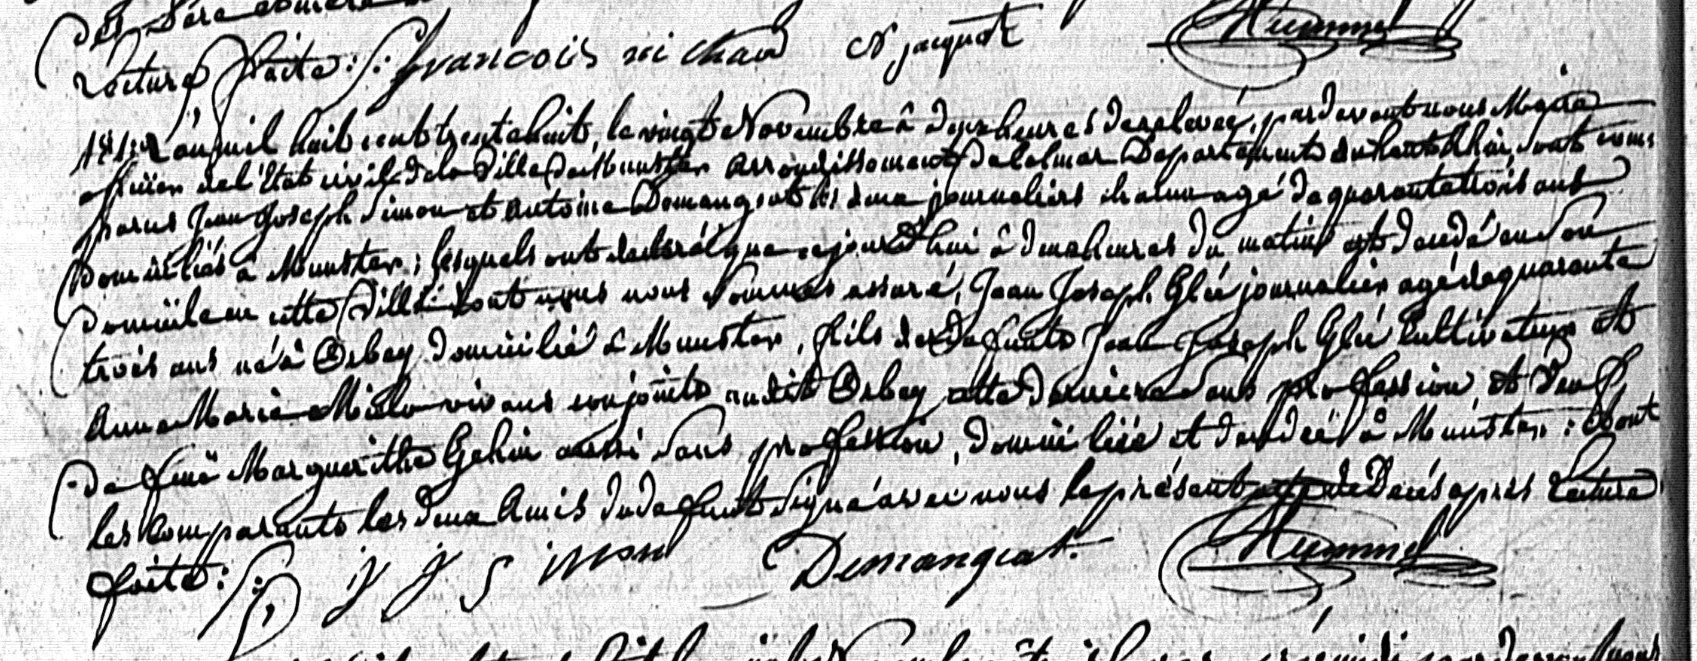 des Père et mère
Lecture faite: /: françois michaud N jacquot Hummel
L'an mil huit cent trente huit, le vingt Novembre à deux heures de relevée, par devant nous Maire
officier de l'Etat civil de la Ville de Munster arrondissement de Colmar Département du haut Rhin, sont com-
parus Jean Joseph Simon et Antoine Demangeat les deux journaliers chacun agé de quarante trois ans
domiciliés à Munster; lesquels ont déclaré que cejourd'hui à deux heures du matin est décédé en son
domicile en cette Ville dont nous nous sommes assuré, Jean Joseph Glé journalier agé de quarante
trois ans né à Orbey domicilié à Munster, fils des défunts Jean Joseph Glé Cultivateur et
Anne Marie Miclo vivans conjoints audit Orbey cette dernière sans profession, et Veuf
de feue Margueritte Gehin aussi sans profession, domiciliée et décédée à Munster: Dont
les Comparants les deux Amis du defunt signé avec nous le présent acte de Decés après Lecture
faite: /: j j Simon Demangeat. Hummel